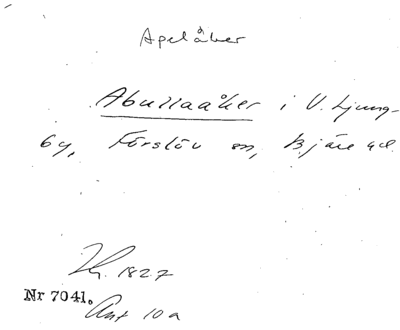 Apelåker
Abullaåker i V. Ljung-
by, Förslöv sn, Bjäre hd.
Hy. 1827
Nr 7041.
Akt 10a